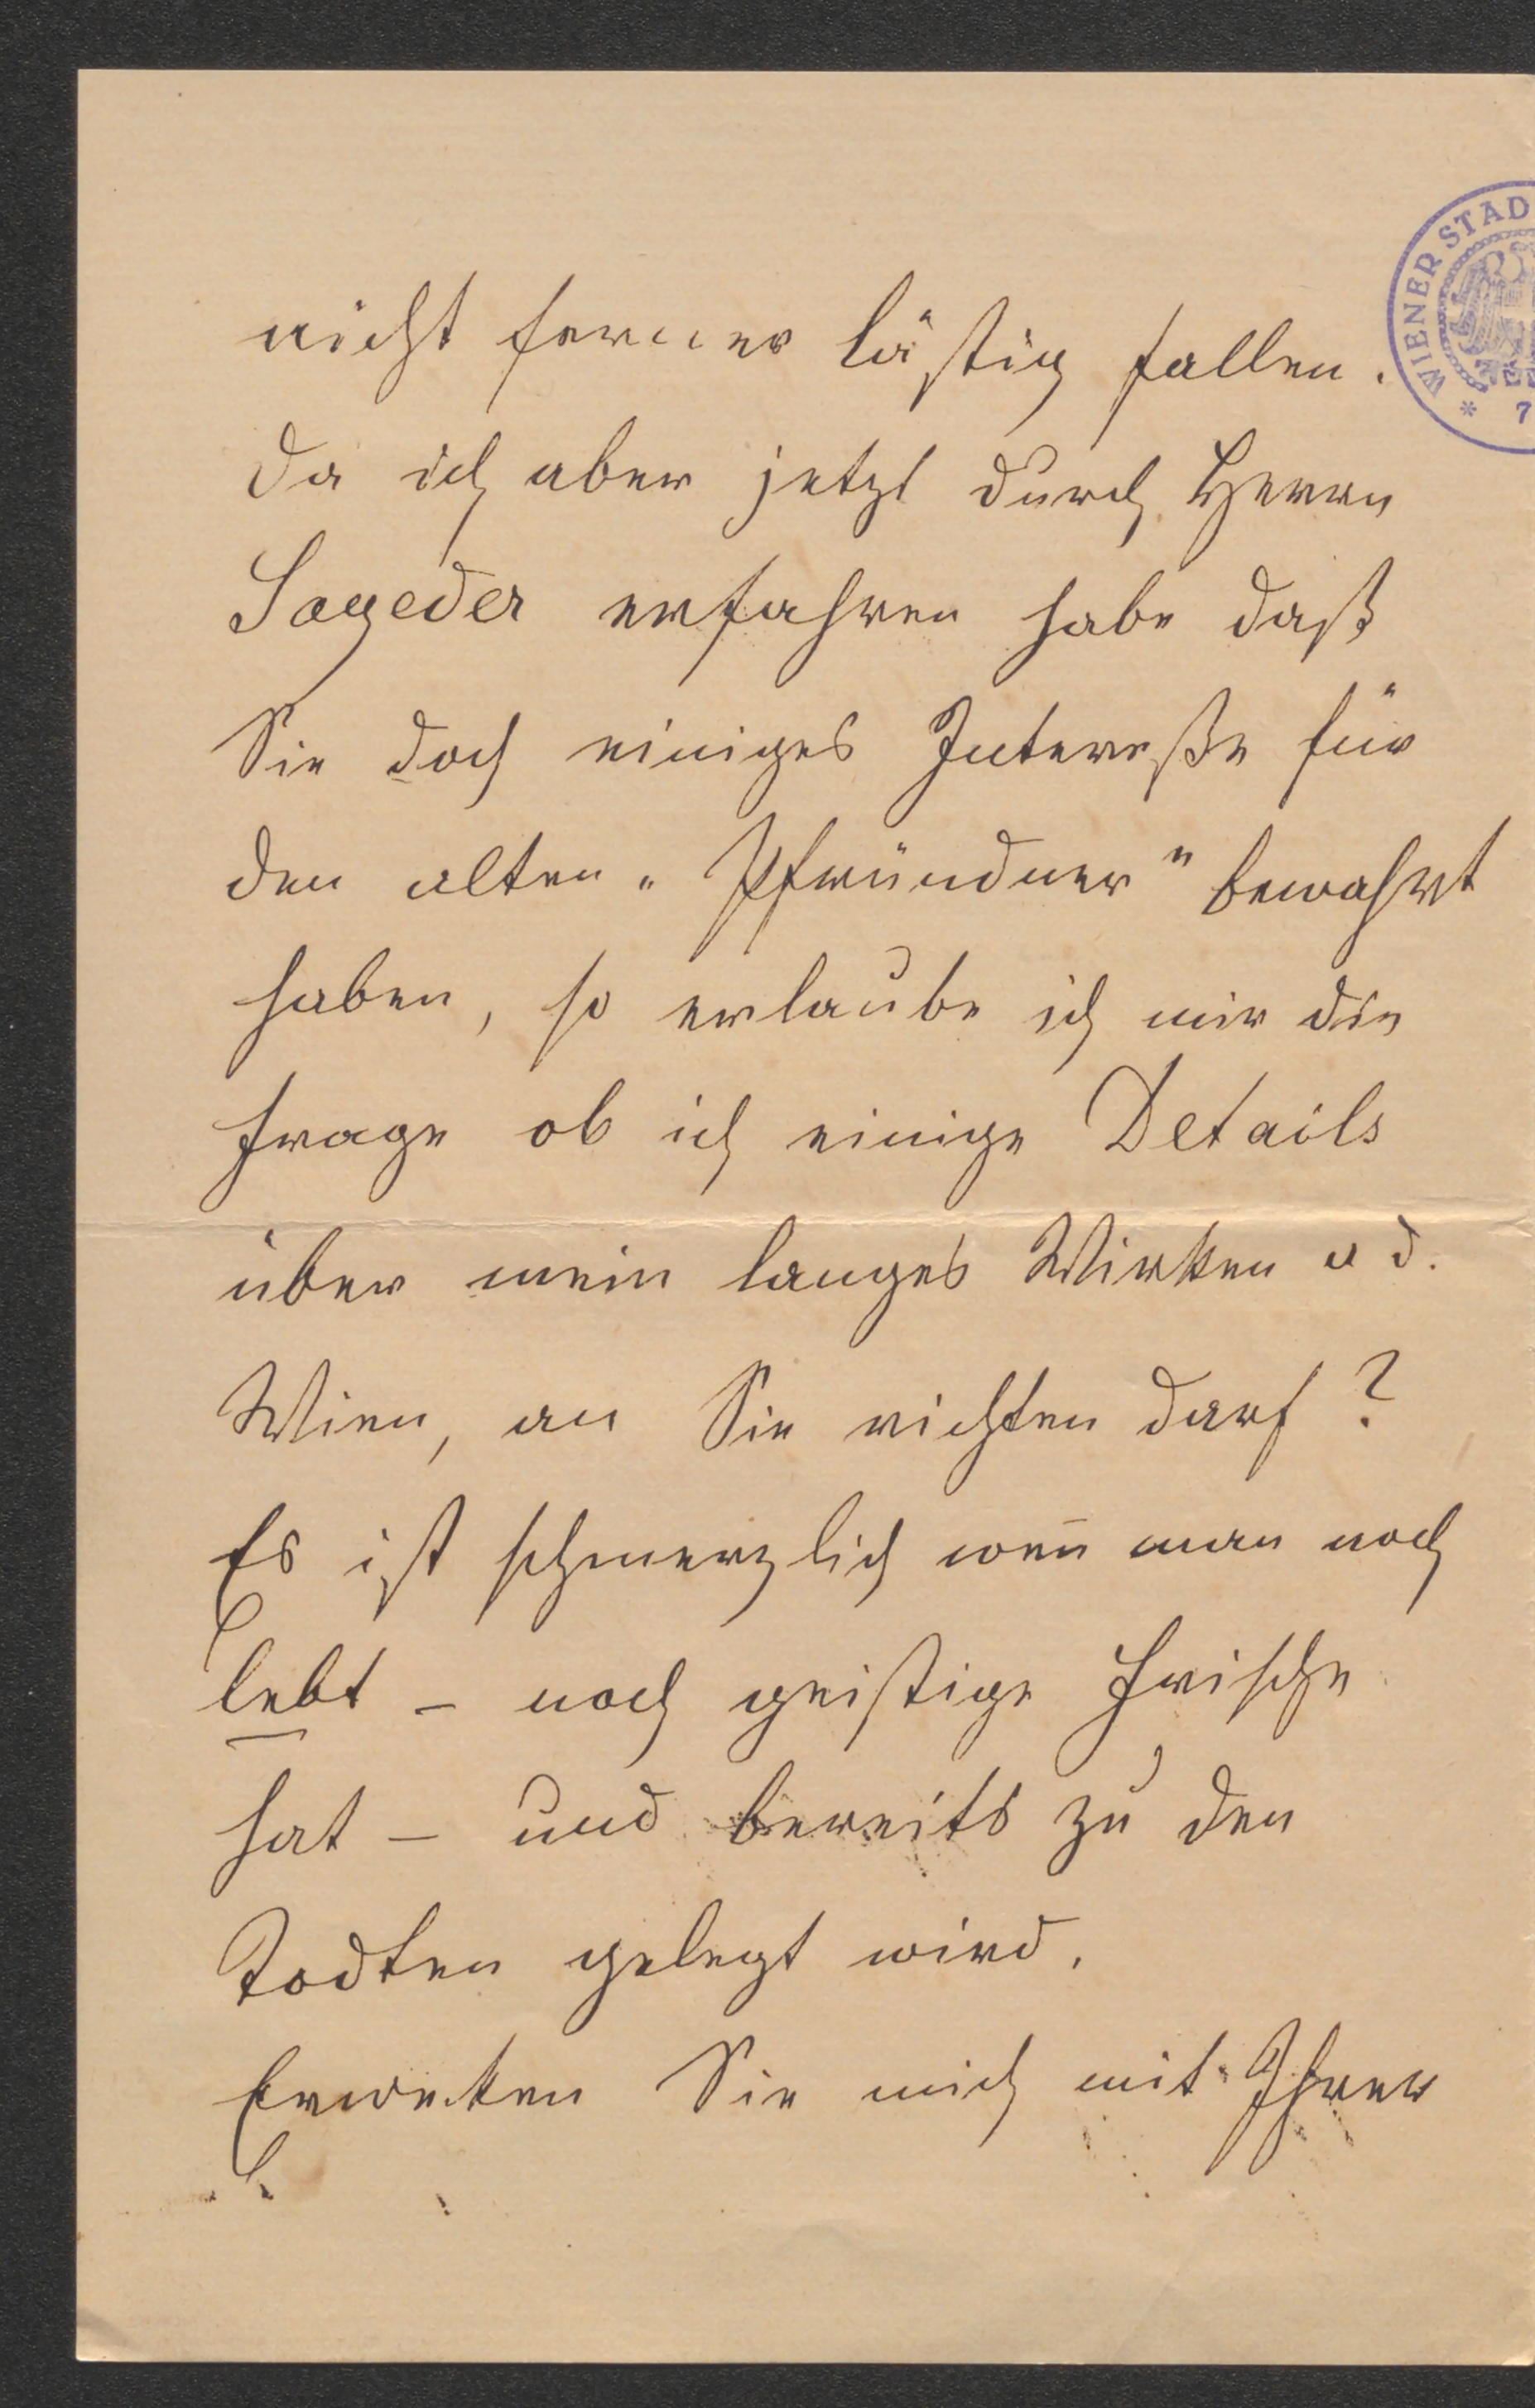 WIENER STAD
* 7
nicht ferner lästig fallen.
Da ich aber jetzt durch Herrn
Sageder erfahren habe daß
Sie doch einiges Intereße für
den alten „Pfründner" bewahrt
haben, so erlaube ich mir die
Frage ob ich einige Details
über mein langes Wirken a d.
Wien, an Sie richten darf?
Es ist schmerzlich wen̄ man noch
lebt – noch geistige Frische
hat – und bereits zu den
Todten gelegt wird.
Erweken Sie mich mit Ihrer